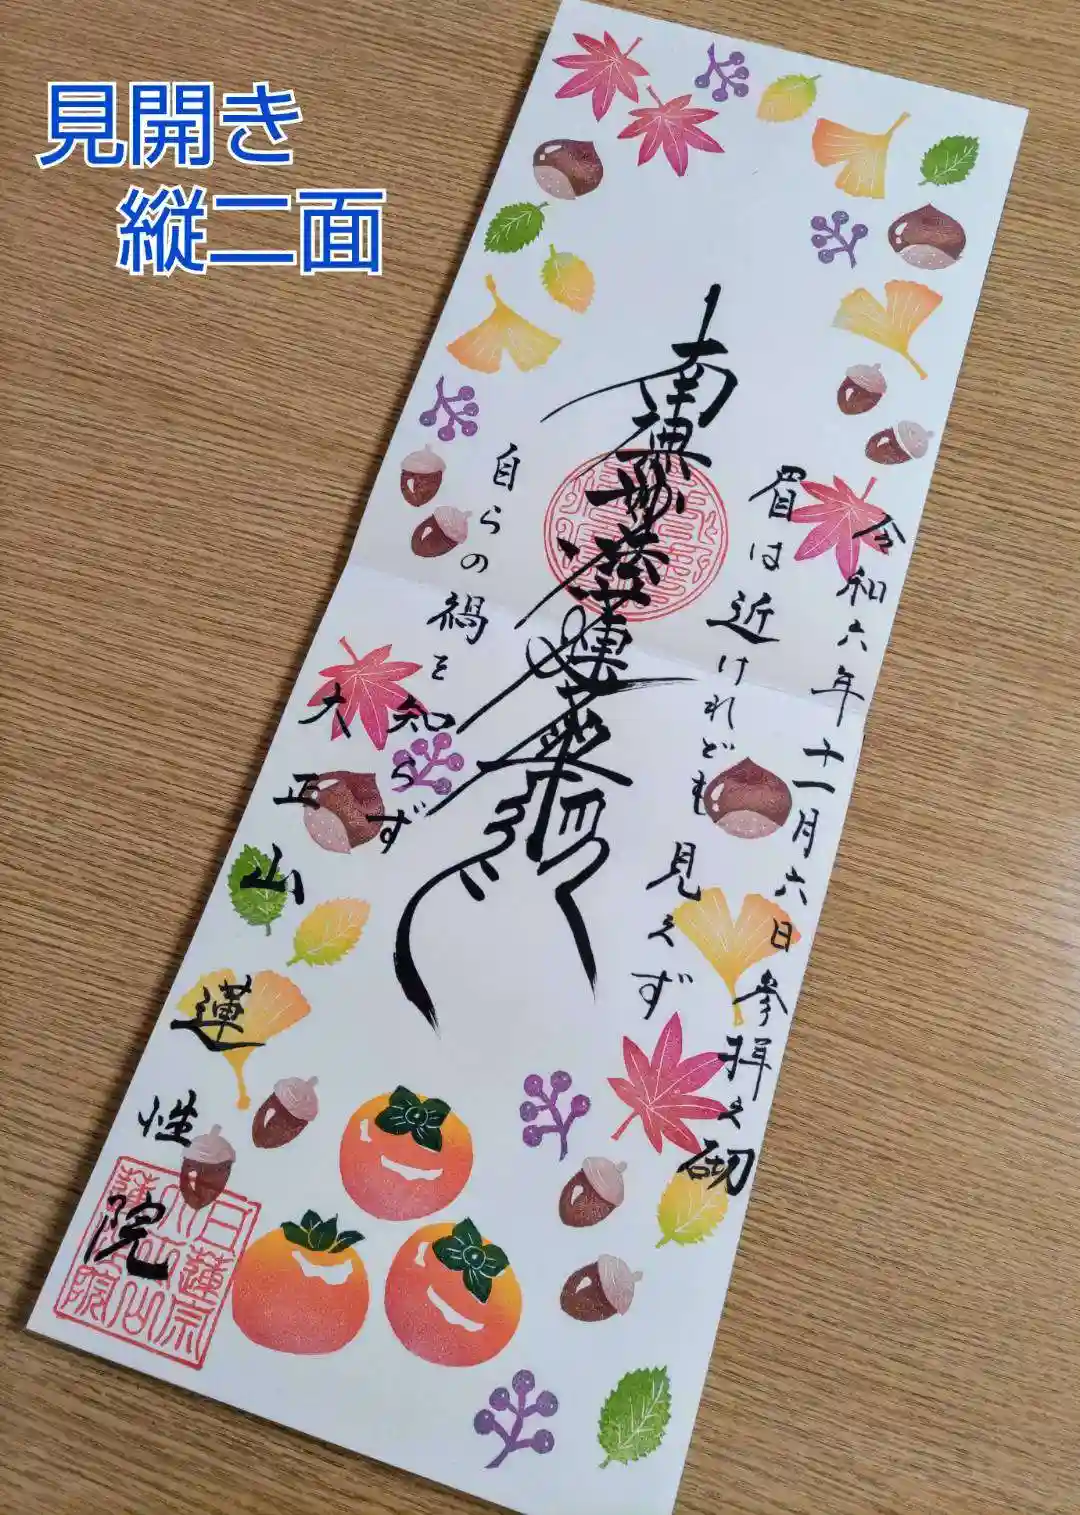 見開き
縦二面
令和六年十一月六日参拝之砌
眉は近けれども見えず
南無妙法蓮華経
自らの禍を知らず
大正山
蓮性院
日蓮宗